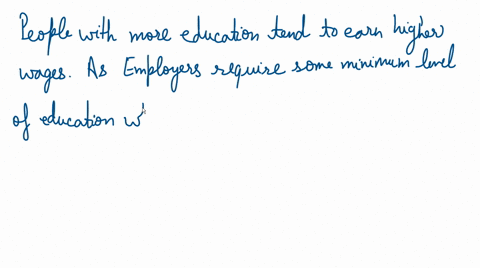 People with more education tend to earn higher
wages. As Employers require some minimum level
of education